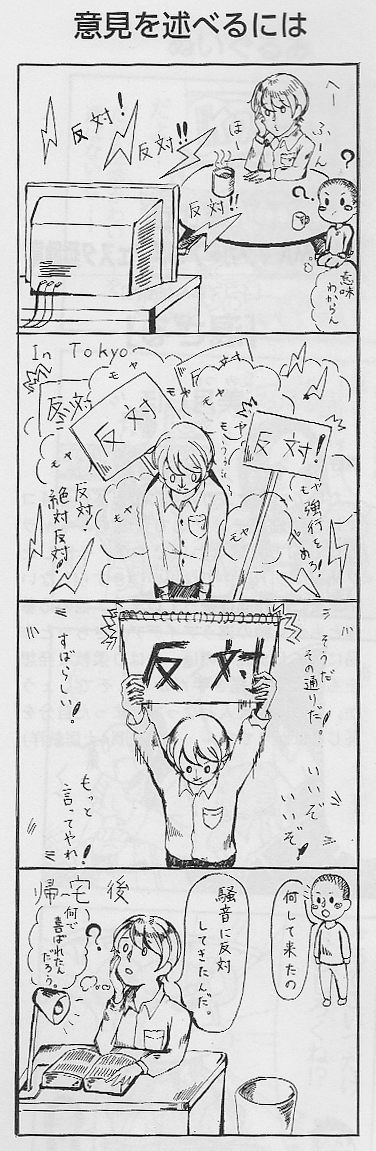 意見を述べるには
へー
ふーん
ほー
反対!
反対!!
反対!!
?
?
意味
わからん
In Tokyo
反対
反対
反対
反対!
モヤ
モヤ
モヤ
モヤ
モヤ
モヤ
強行を
やめろ!
反対!
絶対反対!
反対
そうだ
その通りだ!
すばらしい!
いいぞ
いいぞ!
もっと
言ってやれ!
帰宅後
何して来たの
騒音に反対
してきたんだ。
?
何で
喜ばれたん
だろう。